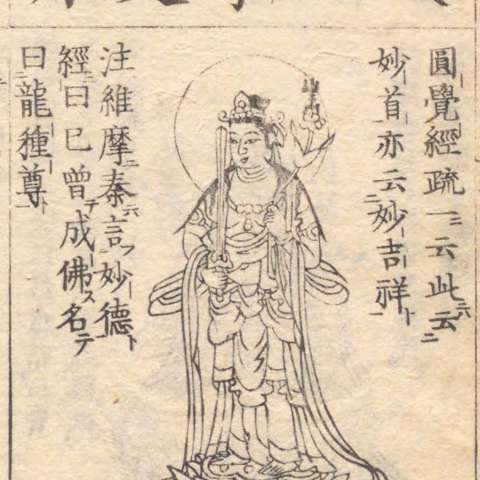 圓覺經疏一ニ云此ニハ云二
妙首亦云二妙吉祥ト
注維摩ニ秦ニハ言フ妙德ト
經ニ曰已曾テ成佛ス名テ
曰龍種尊ト